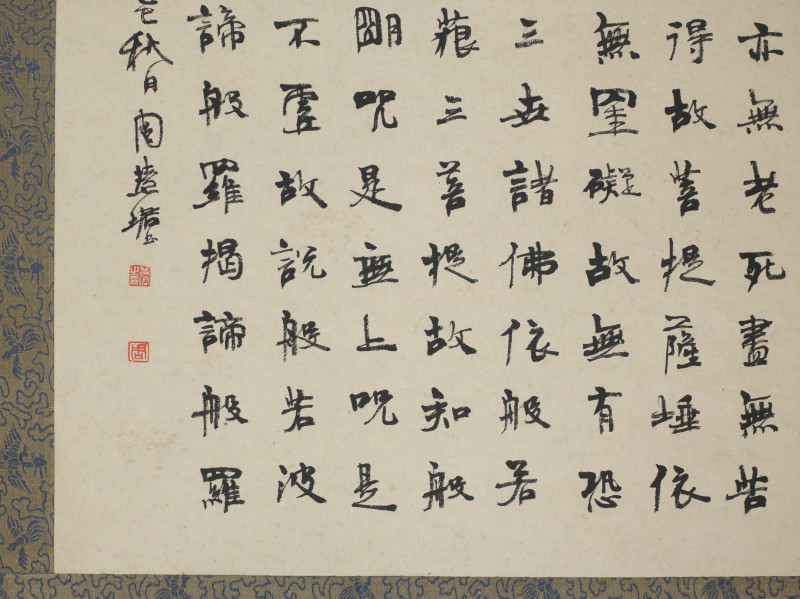 亦無老死盡無苦
得故菩提薩埵依
無罣礙故無有恐
三世諸佛依般若
藐三菩提故知般
朙咒是無上咒是
不虛故說般若波
諦般羅揭諦般羅
秋日周慧珺